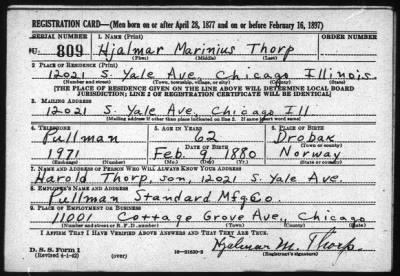 REGISTRATION CARD—(Men born on or after April 28, 1877 and on or before February 16, 1897)
SERIAL NUMBER 1. NAME (Print) ORDER NUMBER
U: 809 Hjalmar Marinius Thorp
(First) (Middle) (Last)
2. PLACE OF RESIDENCE (Print)
12021 S. Yale Ave. Chicago Illinois.
(Number and street) (Town, township, village, or city) (County) (State)
[THE PLACE OF RESIDENCE GIVEN ON THE LINE ABOVE WILL DETERMINE LOCAL BOARD
JURISDICTION; LINE 2 OF REGISTRATION CERTIFICATE WILL BE IDENTICAL]
3. MAILING ADDRESS
12021 S. Yale Ave. Chicago Ill
(Mailing address if other than place indicated on line 2. If same insert word same)
4. TELEPHONE 5. AGE IN YEARS 6. PLACE OF BIRTH
Pullman 62 Drobak
DATE OF BIRTH (Town or county)
1971 Feb. 9 1880 Norway
(Exchange) (Number) (Mo.) (Day) (Yr.) (State or country)
7. NAME AND ADDRESS OF PERSON WHO WILL ALWAYS KNOW YOUR ADDRESS
Harold Thorp, son, 12021 S. Yale Ave.
8. EMPLOYER'S NAME AND ADDRESS
Pullman Standard Mfg Co.
9. PLACE OF EMPLOYMENT OR BUSINESS
11001 Cottage Grove Ave., Chicago
(Number and street or R. F. D. number) (Town) (County) (State)
I AFFIRM THAT I HAVE VERIFIED ABOVE ANSWERS AND THAT THEY ARE TRUE.
D. S. S. Form 1
(Revised 4-1-42) (over) 16—21630-2 Hjalmar M. Thorp
(Registrant's signature)